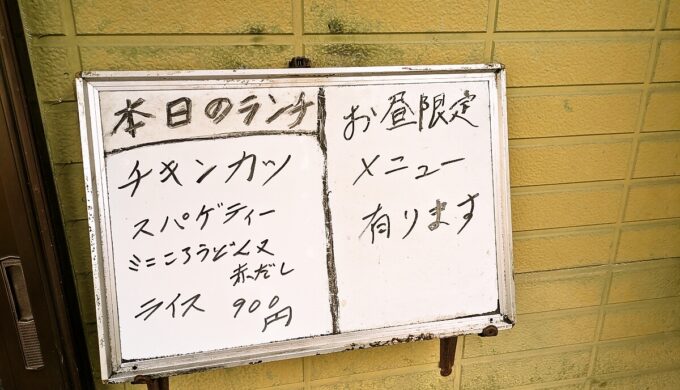 本日のランチ
チキンカツ
スパゲティー
ミニころうどん又
赤だし
ライス 900
円
お昼限定
メニュー
有ります